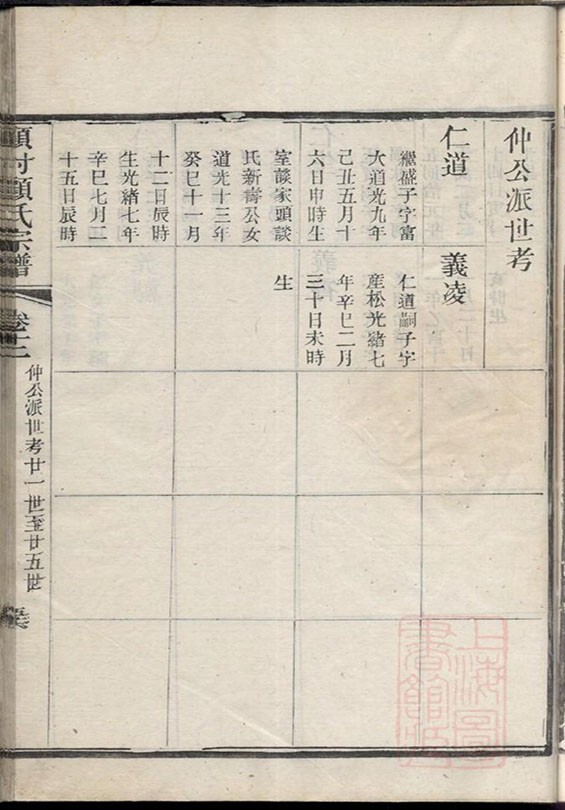 仲公派世考
仁道
繼盛子字富
大道光九年
己丑五月十
六日申時生
室談家頭談
氏新壽公女
道光十三年
癸巳十一月
十二日辰時
生光緒七年
辛巳七月二
十五日辰時
義凌
仁道嗣子字
産松光緒七
年辛巳二月
三十日未時
生
顧氏宗譜
卷十二
仲公派世考廿一世至廿五世
上海圖書館藏